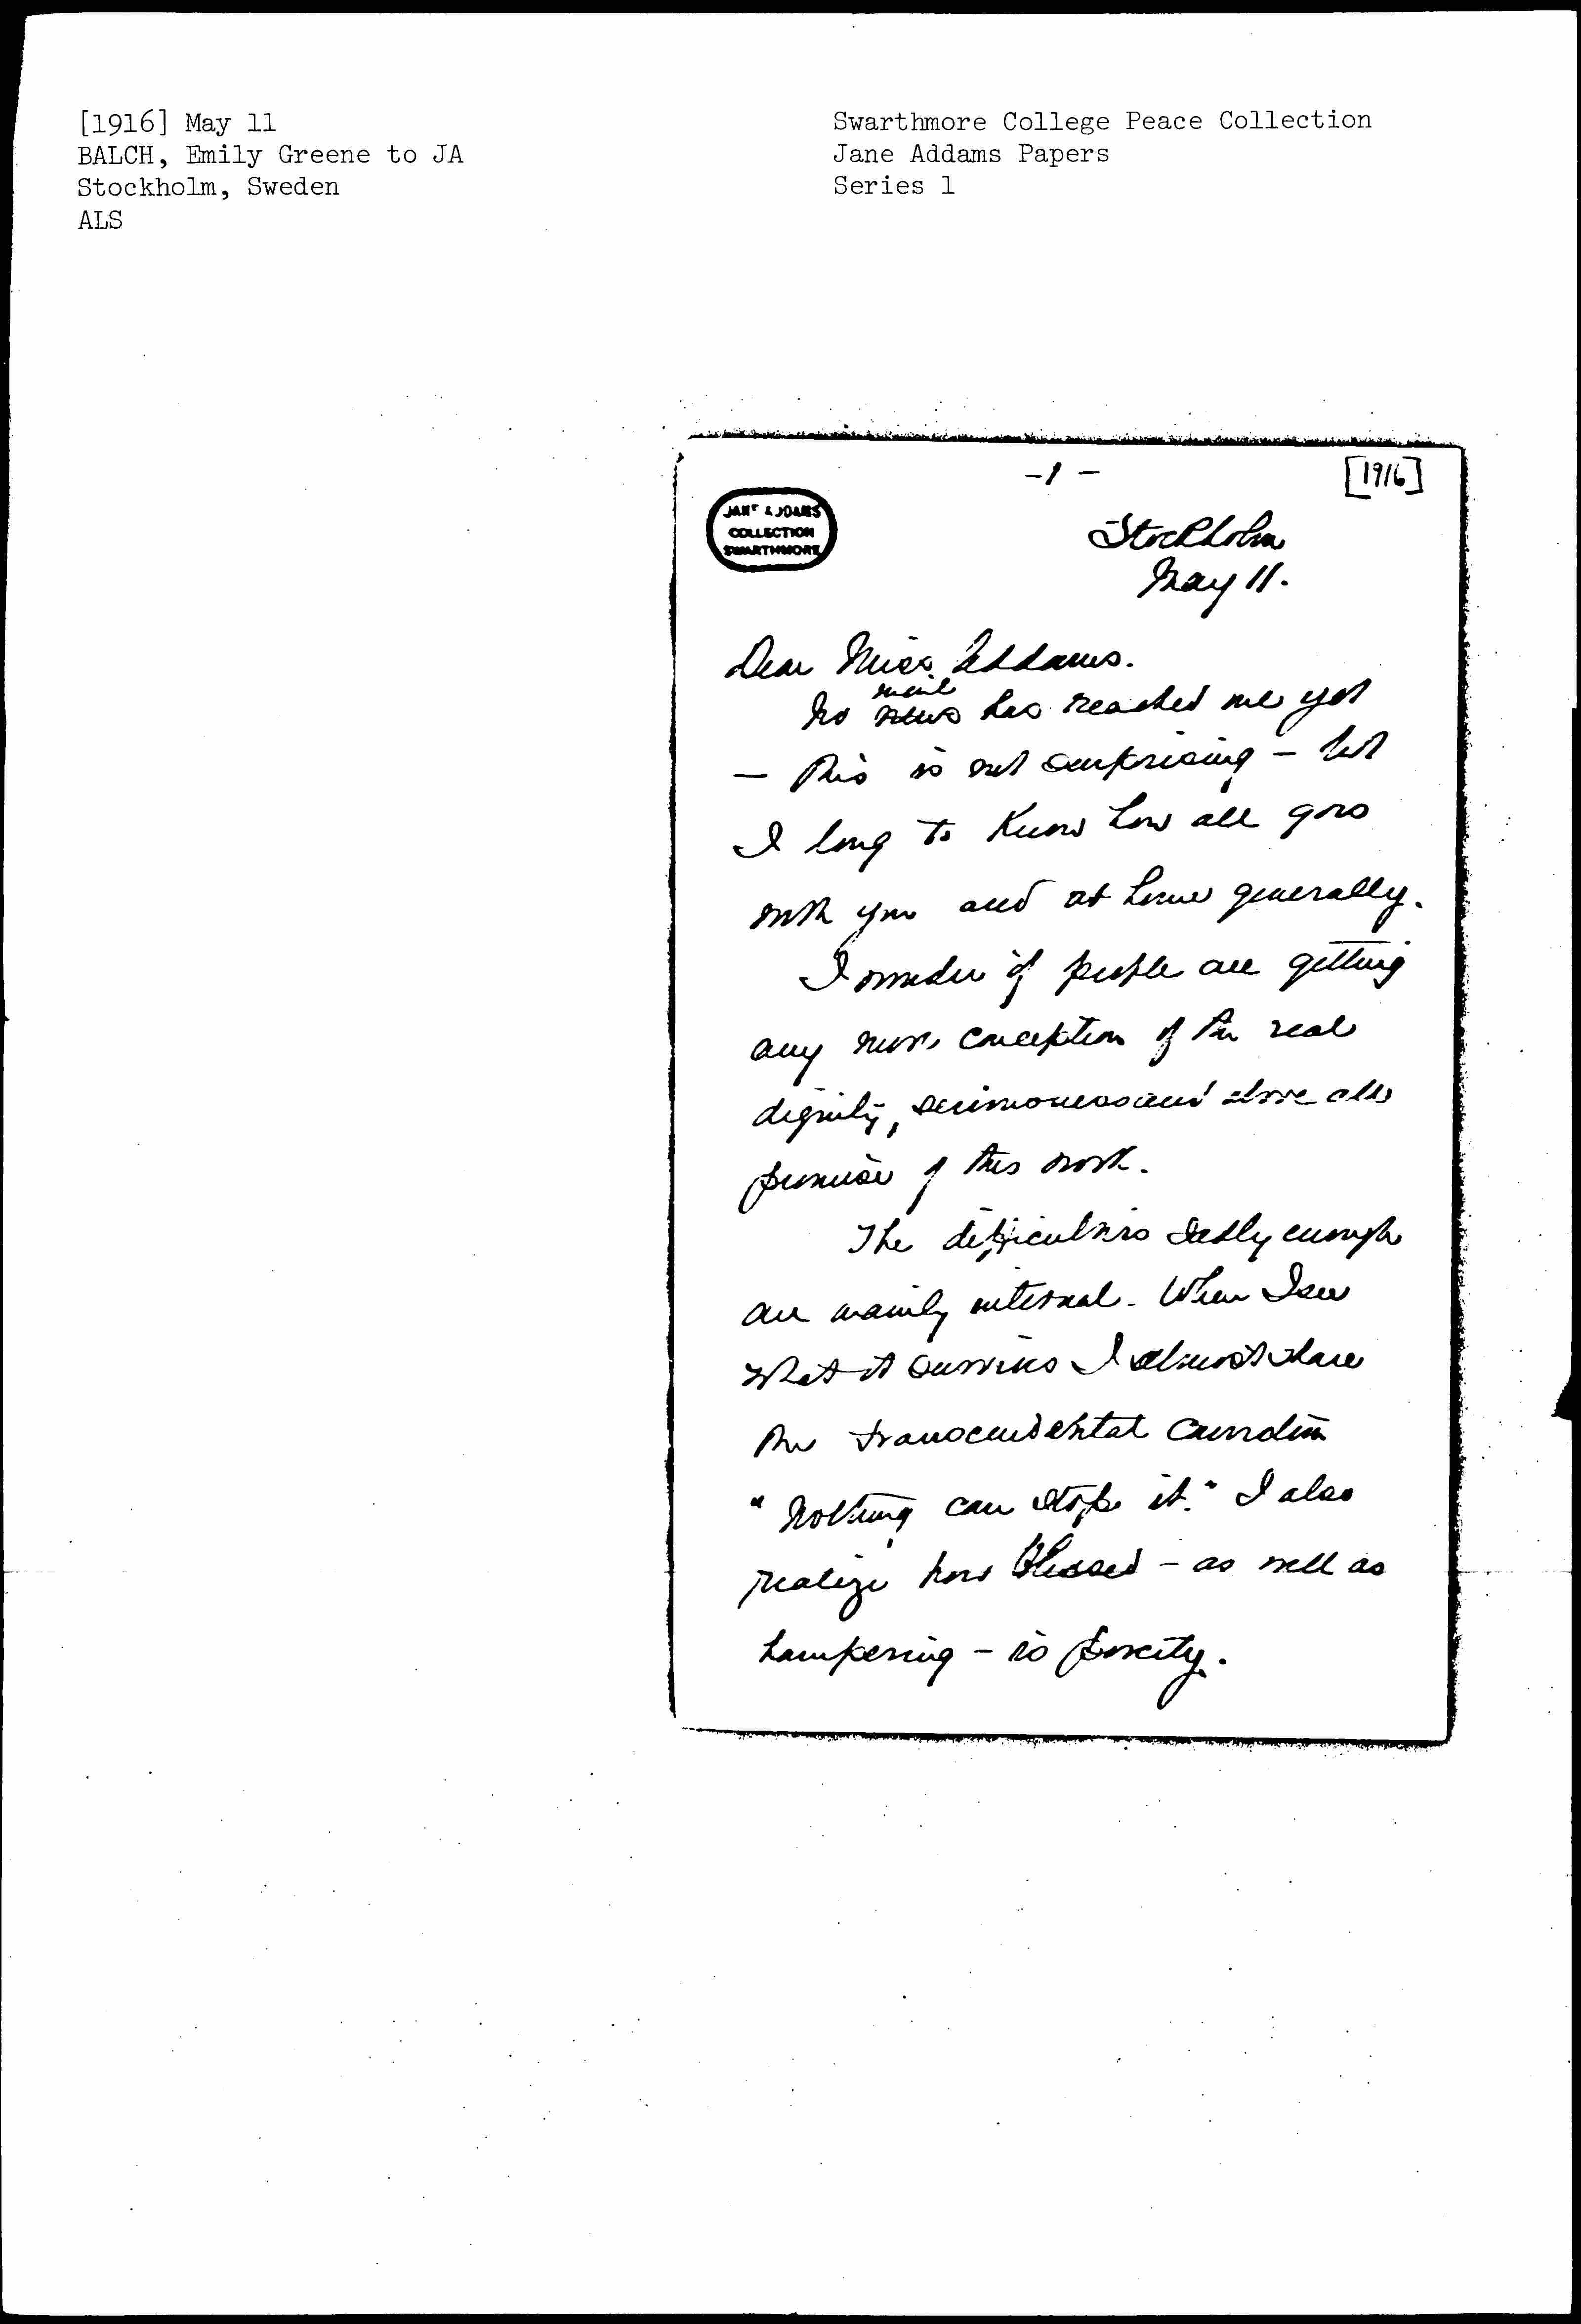 [1916] May 11
BALCH, Emily Greene to JA
Stockholm, Sweden
ALS
Swarthmore College Peace Collection
Jane Addams Papers
Series 1
- 1 -
[1916]
JANE ADDAMS
COLLECTION
SWARTHMORE
Stockholm
May 11.
Dear Miss Addams.
mail
No news has reached me yet
— this is not surprising — but
I long to know how all goes
with you and at home generally.
I wonder if people are getting
any more conception of the real
dignity, seriousness and above all
promise of this work.
The difficulties sadly enough
are mainly internal. When I see
what it survives I almost share
the transcendental conviction
"Nothing can stop it." I also
realize how blessed - as well as
hampering - is poverty.